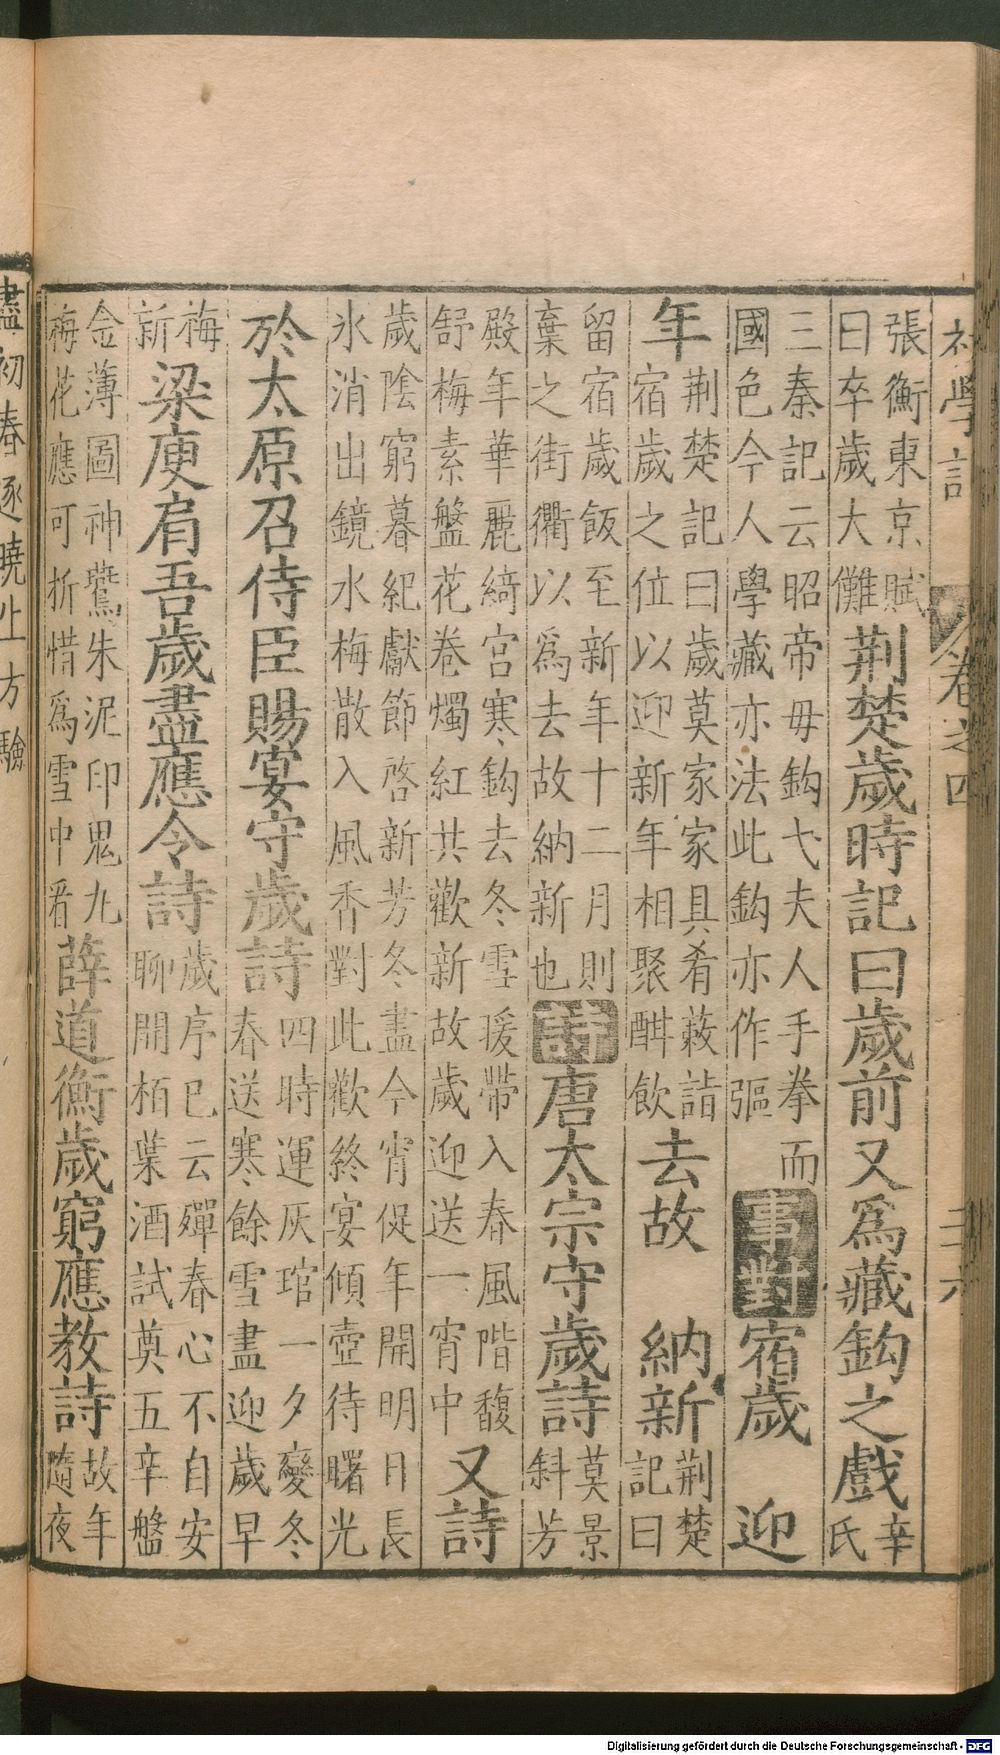 初學記 卷之四
張衡東京賦
曰卒歲大儺
荆楚歲時記曰歲前又爲藏鈎之戲
辛
氏
三秦記云昭帝毋鈎弋夫人手拳而
國色今人學藏亦法此鈎亦作彄
事對
宿歲 迎
年
荆楚記曰歲莫家家具肴蔌詣
宿歲之位以迎新年相聚酣飲
去故 納新
荆楚
記曰
留宿歲飯至新年十二月則
棄之街衢以爲去故納新也
唐太宗守歲詩
莫景
斜芳
殿年華麗綺宮寒鈎去冬雪暖帶入春風階馥
舒梅素盤花卷燭紅共歡新故歲迎送一宵中
又詩
歲陰窮暮紀獻節啓新芳冬盡今宵促年開明日長
氷消出鏡水梅散入風香對此歡終宴傾壺待曙光
於太原召侍臣賜宴守歲詩
四時運灰琯一夕變冬
春送寒餘雪盡迎歲早
梅
新
梁庾肩吾歲盡應令詩
歲序已云殫春心不自安
聊開栢葉酒試奠五辛盤
金薄圖神鷰朱泥印鬼丸
梅花應可折惜爲雪中看
薛道衡歲窮應教詩
故年
隨夜
盡初春逐曉生方驗
Digitalisierung gefördert durch die Deutsche Forschungsgemeinschaft - DFG